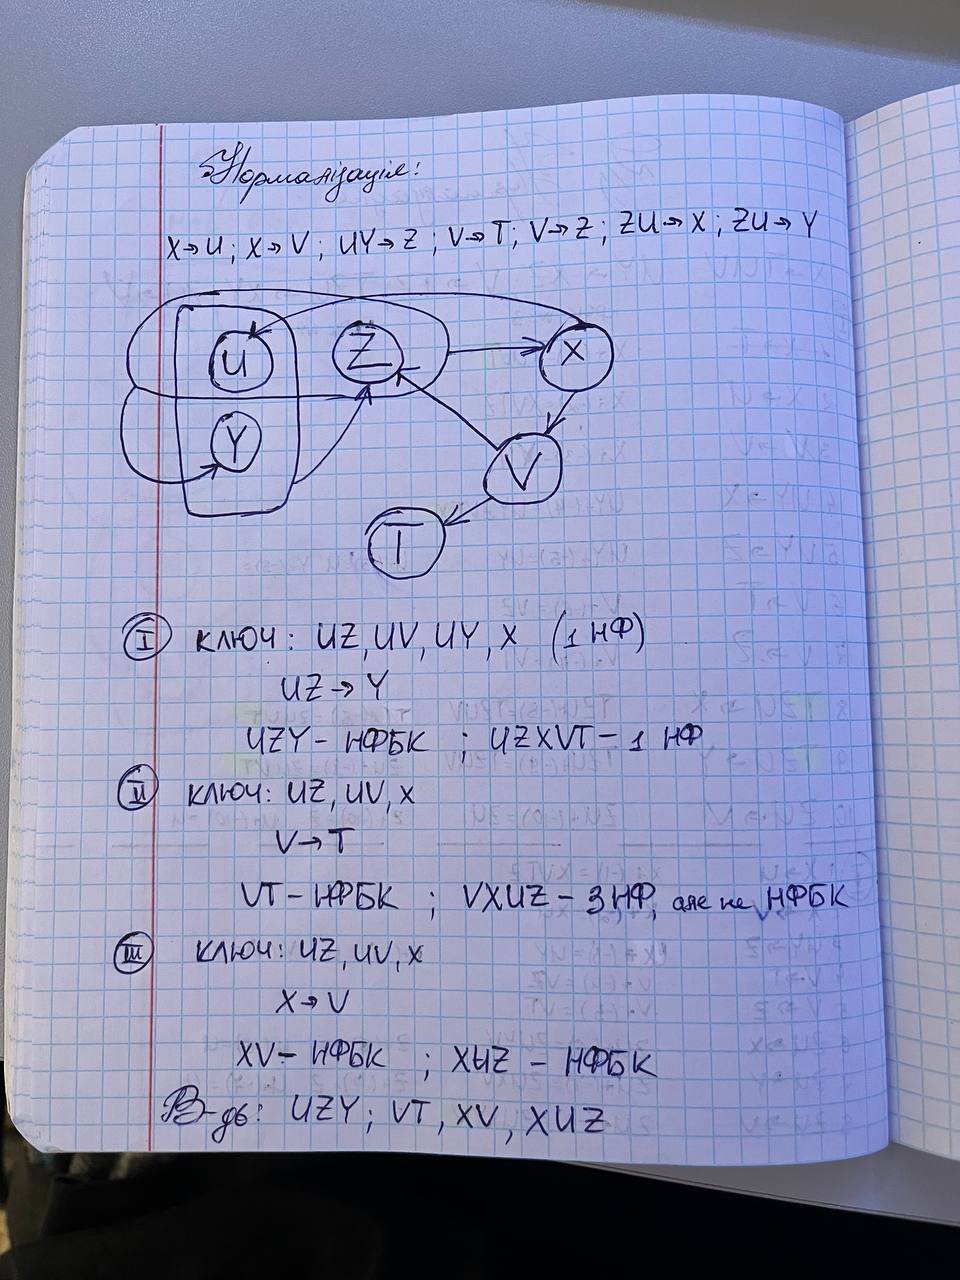 Нормалізація:
X→U; X→V; UY→Z; V→T; V→Z; ZU→X; ZU→Y
U Z X
Y V
T
I ключ: UZ, UV, UY, X (1 НФ)
UZ→Y
UZY - НФБК ; UZXVT - 1 НФ
II ключ: UZ, UV, X
V→T
VT - НФБК ; VXUZ - 3НФ, але не НФБК
III ключ: UZ, UV, X
X→V
XV - НФБК ; XUZ - НФБК
В-дь: UZY; VT, XV, XUZ